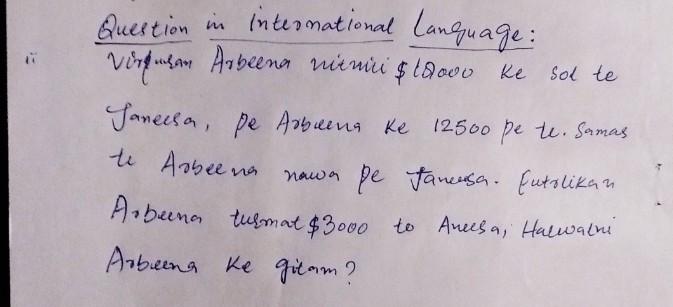 Question in International Language:
ii Virqusan Arbeena nitnici $ 10000 Ke sol te
Janeesa, pe Arbeena Ke 12500 pe te. Samas
te Arbeena nawa pe Janeesa. Eutolikan
Arbeena tusmat $3000 to Aneesa, Halwatni
Arbeena Ke gitam?